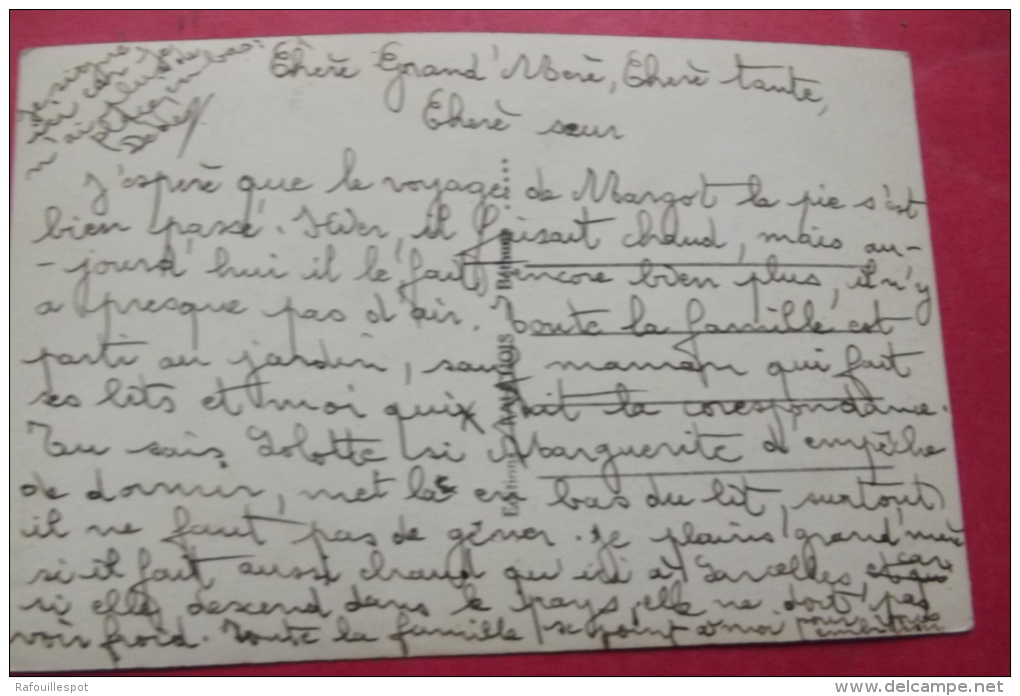 Je signe
ici car je
n'ai plus de
place en bas:
Dédé
Cherè Grand' Merè, Cherè tante,
Cherè sœur
J'esperè que le voyage de Margot la pie s'est
bien passé. Hier, il faisait chaud, mais au-
-jourd'hui il le fait encore bien plus, il n'y
a presque pas d'air. Toute la famille est
parti au jardin, sauf maman qui fait
ses lits et moi qui fait la corespondance.
Tu sais Lolotte si Marguerite t'empêche
de dormir, met la en bas du lit, surtout
il ne faut pas te gêner. Je plains grand'mère
si il fait aussi chaud qu'ici à Sarcelles, car
si elle descend dans le pays, elle ne doit pas
voir froid. Toute la famille se joint à moi pour
Edition Béthune
Rafouillespot
www.delcampe.net